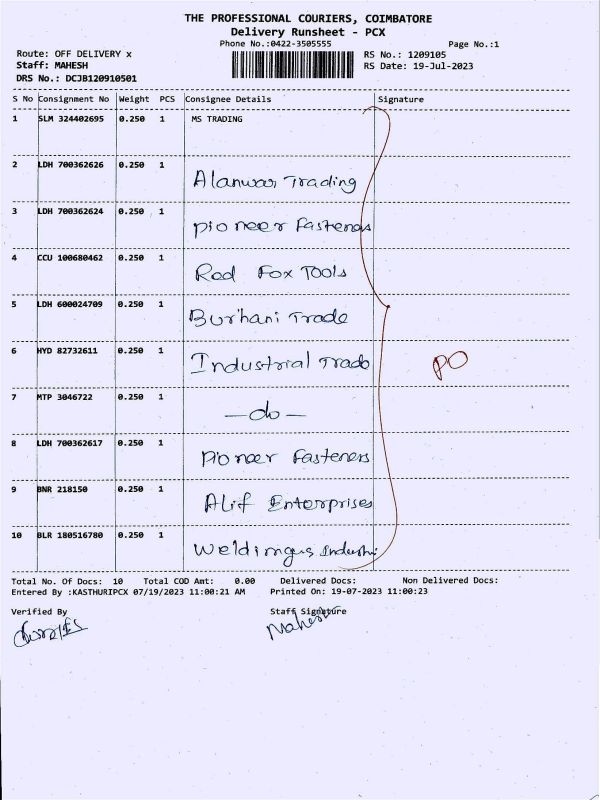 THE PROFESSIONAL COURIERS, COIMBATORE
Delivery Runsheet - PCX
Phone No.:0422-3505555 Page No.:1
Route: OFF DELIVERY x RS No.: 1209105
Staff: MAHESH RS Date: 19-Jul-2023
DRS No.: DCJB120910501
S No Consignment No Weight PCS Consignee Details Signature
1 SLM 324402695 0.250 1 MS TRADING
2 LDH 700362626 0.250 1 Alanwar Trading
3 LDH 700362624 0.250 1 Pioneer Fasteners
4 CCU 100680462 0.250 1 Red Fox Tools
5 LDH 600024709 0.250 1 Burhani Trade
6 HYD 82732611 0.250 1 Industrial Trade PO
7 MTP 3046722 0.250 1 -do-
8 LDH 700362617 0.250 1 Pioneer Fasteners
9 BNR 218150 0.250 1 Alif Enterprises
10 BLR 180516780 0.250 1
Total No. Of Docs: 10 Total COD Amt: 0.00 Delivered Docs: Non Delivered Docs:
Entered By :KASTHURIPCX 07/19/2023 11:00:21 AM Printed On: 19-07-2023 11:00:23
Verified By Staff Signature
Mahesh